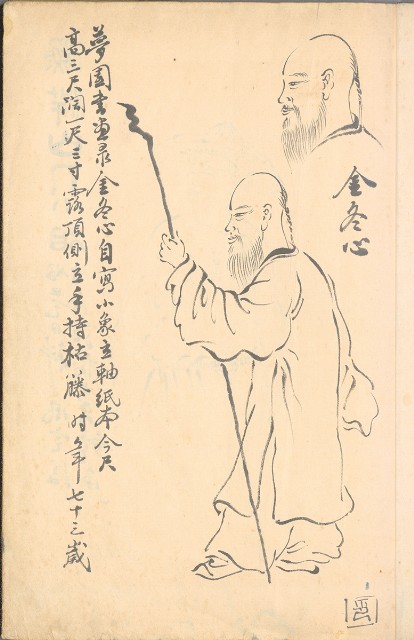 金冬心
夢園書畫录金冬心自寫小象立軸紙本今尺
高三尺濶一尺三寸露頂側立手持枯藤时年七十三歲